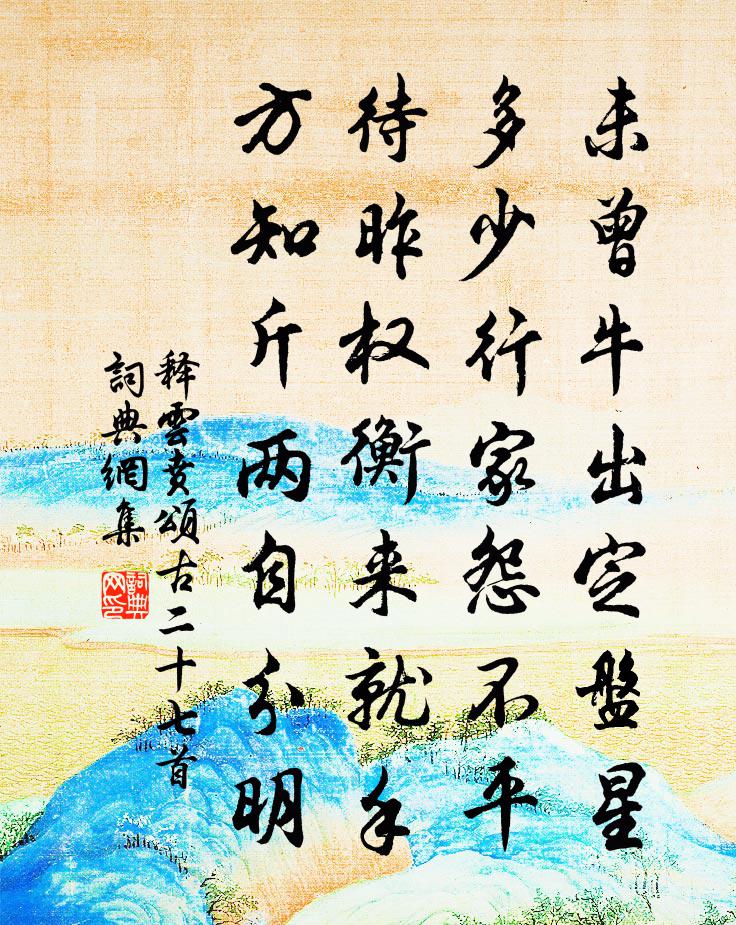 未曾牛出定盤星
多少行家怨不平
待昨权衡来就手
方知斤两自分明
释雲賁頌古二十七首
詞典網集
詞典网印